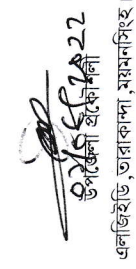 উপজেলা প্রকৌশলী
এলজিইডি, তারাকান্দা, ময়মনসিংহ।